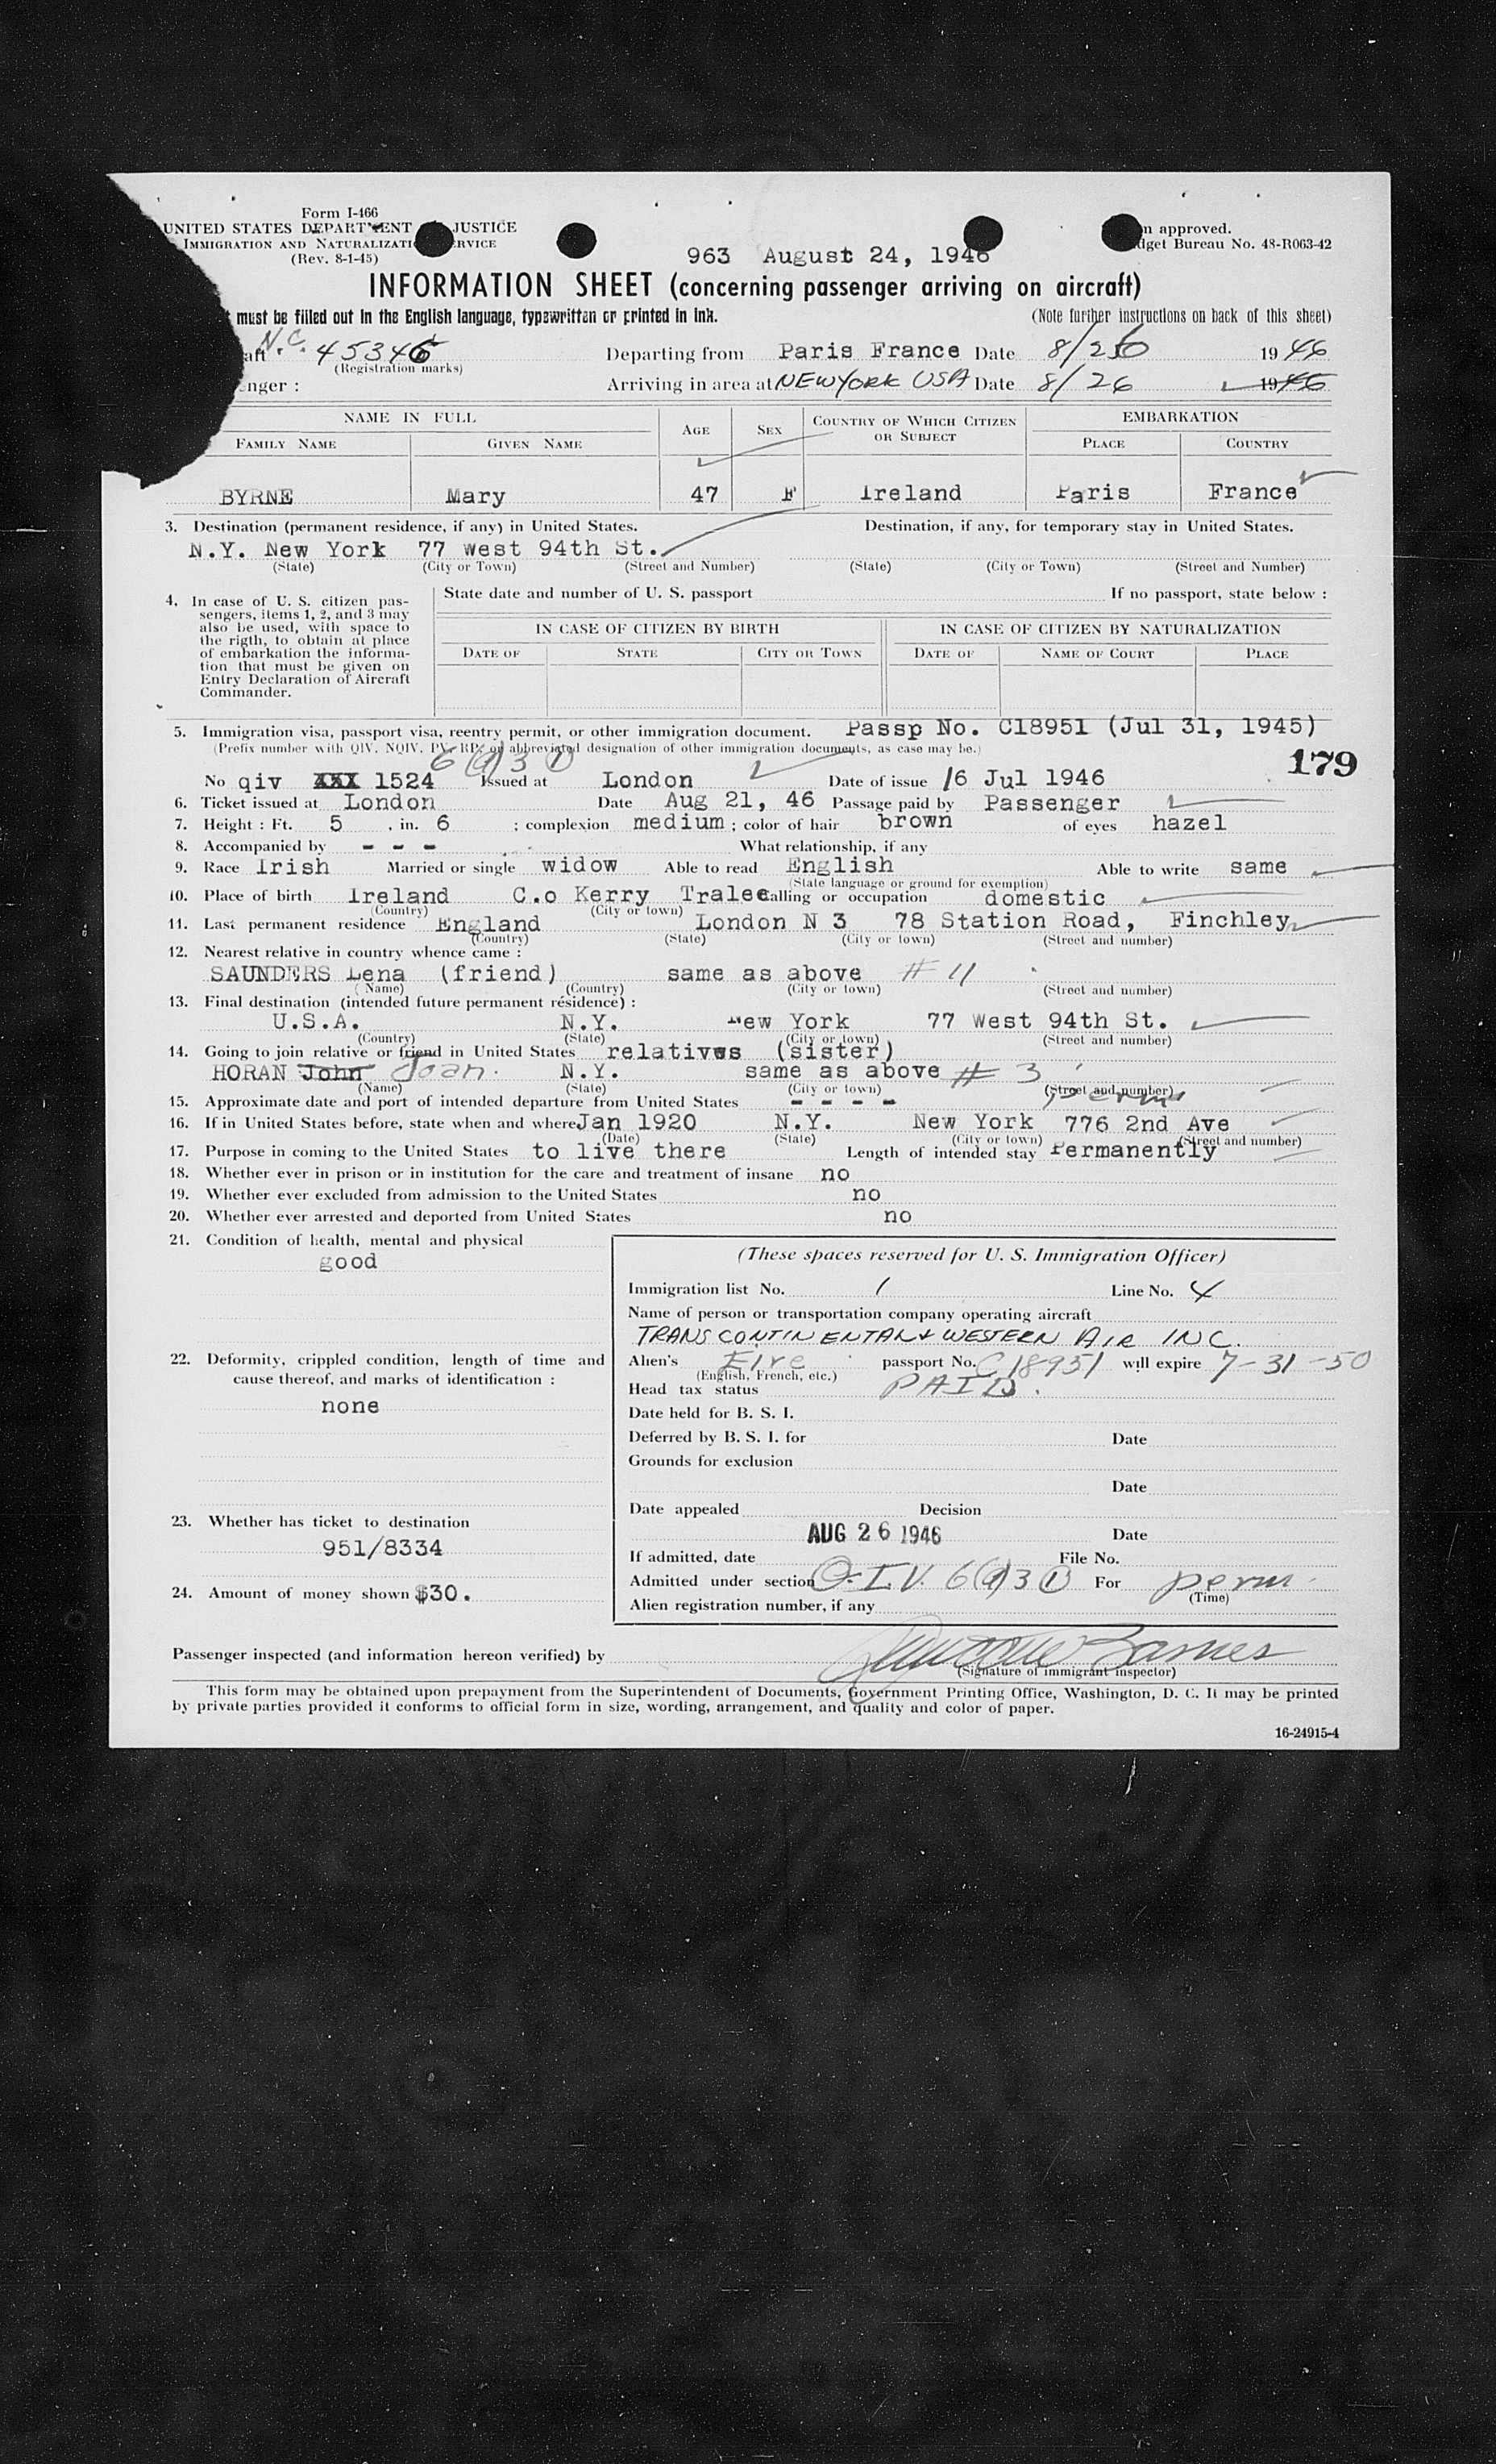 Form I-466
UNITED STATES DEPARTMENT JUSTICE
IMMIGRATION AND NATURALIZATI ERVICE
(Rev. 8-1-45)
n approved.
dget Bureau No. 48-R063-42
963 August 24, 1946
INFORMATION SHEET (concerning passenger arriving on aircraft)
must be filled out in the English language, typewritten or printed in ink.
(Note further instructions on back of this sheet)
aft N.C. 45346 Departing from Paris France Date 8/26 1946
(Registration marks)
nger : Arriving in area at NEW YORK USA Date 8/26 1946
NAME IN FULL AGE SEX COUNTRY OF WHICH CITIZEN OR SUBJECT EMBARKATION
FAMILY NAME GIVEN NAME PLACE COUNTRY
BYRNE Mary 47 F Ireland Paris France
3. Destination (permanent residence, if any) in United States. Destination, if any, for temporary stay in United States.
N.Y. New York 77 West 94th St.
(State) (City or Town) (Street and Number) (State) (City or Town) (Street and Number)
4. In case of U. S. citizen pas-
sengers, items 1, 2, and 3 may
also be used, with space to
the rigth, to obtain at place
of embarkation the informa-
tion that must be given on
Entry Declaration of Aircraft
Commander.
State date and number of U. S. passport If no passport, state below :
IN CASE OF CITIZEN BY BIRTH IN CASE OF CITIZEN BY NATURALIZATION
DATE OF STATE CITY OR TOWN DATE OF NAME OF COURT PLACE
5. Immigration visa, passport visa, reentry permit, or other immigration document. Passp No. C18951 (Jul 31, 1945)
(Prefix number with QIV, NQIV, PV, RP, or abbreviated designation of other immigration documents, as case may be.)
179
6(a)3(1)
No qiv XXX 1524 Issued at London Date of issue 16 Jul 1946
6. Ticket issued at London Date Aug 21, 46 Passage paid by Passenger
7. Height : Ft. 5 , in. 6 ; complexion medium ; color of hair brown of eyes hazel
8. Accompanied by - - - What relationship, if any
9. Race Irish Married or single widow Able to read English Able to write same
(State language or ground for exemption)
10. Place of birth Ireland C.o Kerry Tralee Calling or occupation domestic
(Country) (City or town)
11. Last permanent residence England London N 3 78 Station Road, Finchley
(Country) (State) (City or town) (Street and number)
12. Nearest relative in country whence came :
SAUNDERS Lena (friend) same as above # 11
(Name) (Country) (City or town) (Street and number)
13. Final destination (intended future permanent résidence) :
U.S.A. N.Y. New York 77 West 94th St.
(Country) (State) (City or town) (Street and number)
14. Going to join relative or friend in United States relatives (sister)
HORAN John Joan. N.Y. same as above # 3
(Name) (State) (City or town) (Street and number)
15. Approximate date and port of intended departure from United States - - - - perm
16. If in United States before, state when and where Jan 1920 N.Y. New York 776 2nd Ave
(Date) (State) (City or town) (Street and number)
17. Purpose in coming to the United States to live there Length of intended stay Permanently
18. Whether ever in prison or in institution for the care and treatment of insane no
19. Whether ever excluded from admission to the United States no
20. Whether ever arrested and deported from United States no
21. Condition of health, mental and physical
good
22. Deformity, crippled condition, length of time and
cause thereof, and marks of identification :
none
23. Whether has ticket to destination
951/8334
24. Amount of money shown $30.
(These spaces reserved for U. S. Immigration Officer)
Immigration list No. 1 Line No. 4
Name of person or transportation company operating aircraft
TRANSCONTINENTAL & WESTERN AIR INC.
Alien's Eire passport No. C18951 will expire 7-31-50
(English, French, etc.)
Head tax status PAID.
Date held for B. S. I.
Deferred by B. S. I. for Date
Grounds for exclusion
Date
Date appealed Decision
AUG 26 1946 Date
If admitted, date File No.
Admitted under section Q-I.V. 6(a)3(1) For perm.
(Time)
Alien registration number, if any
Passenger inspected (and information hereon verified) by Barnes
(Signature of immigrant inspector)
This form may be obtained upon prepayment from the Superintendent of Documents, Government Printing Office, Washington, D. C. It may be printed
by private parties provided it conforms to official form in size, wording, arrangement, and quality and color of paper.
16-24915-4